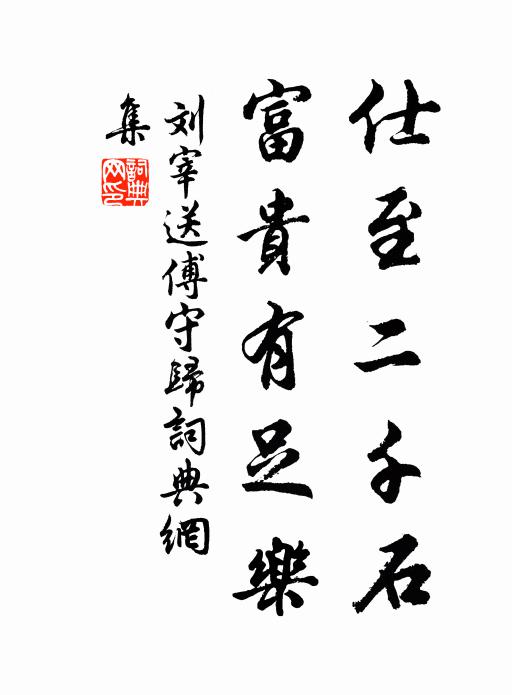 仕至二千石
富貴有足樂
刘宰送傅守歸詞典網
集
詞典網印